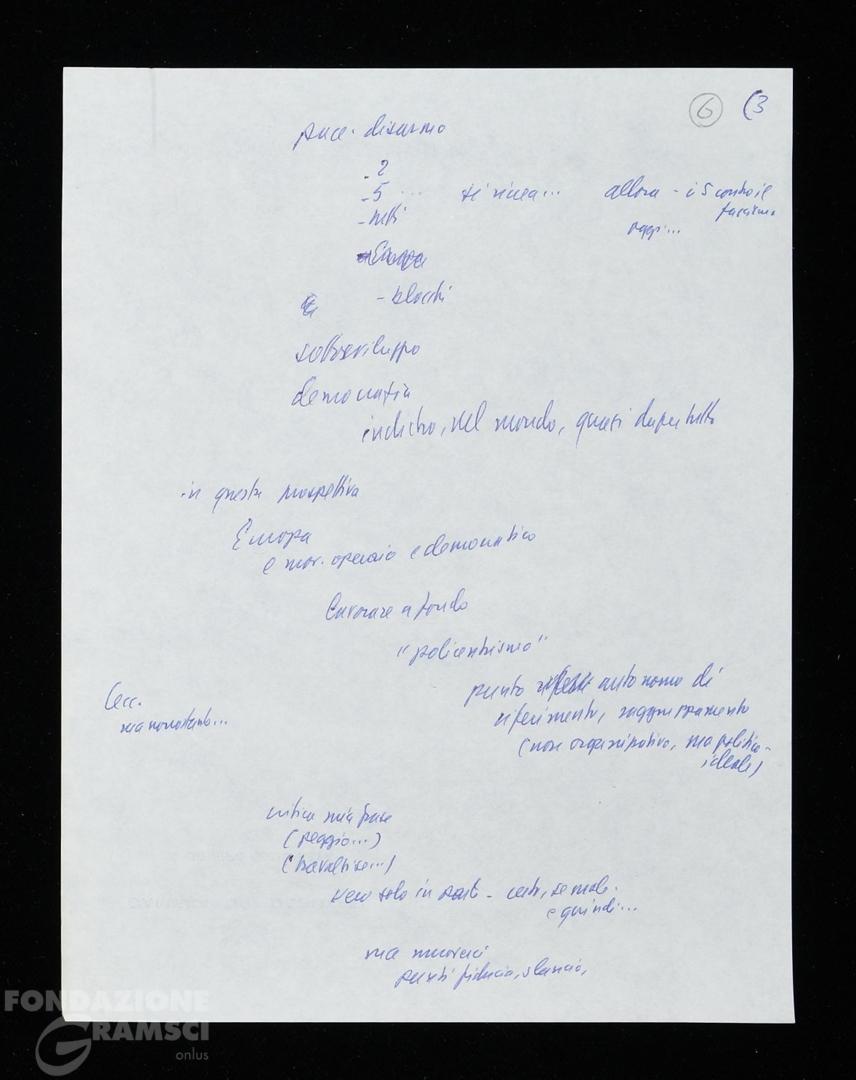 6 (3
pace - disarmo
- 2
- 5 ... allora - i 5 contro il
fascismo
- tutti oggi...
- Europa
- blocchi
sottosviluppo
democrazia
indietro, nel mondo, quasi dapertutto
in questa prospettiva
Europa
e mov. operaio e democratico
lavorare a fondo
"policentrismo"
punto autonomo di
riferimento, raggruppamento
(non organizzativo, ma politico-
ideale)
Cecc.
ma nonostante...
critica mia frase
(peggio...)
vero solo in parte - certo, se molt.
e quindi...
ma muoverci
fiducia, slancio,
FONDAZIONE
GRAMSCI
onlus